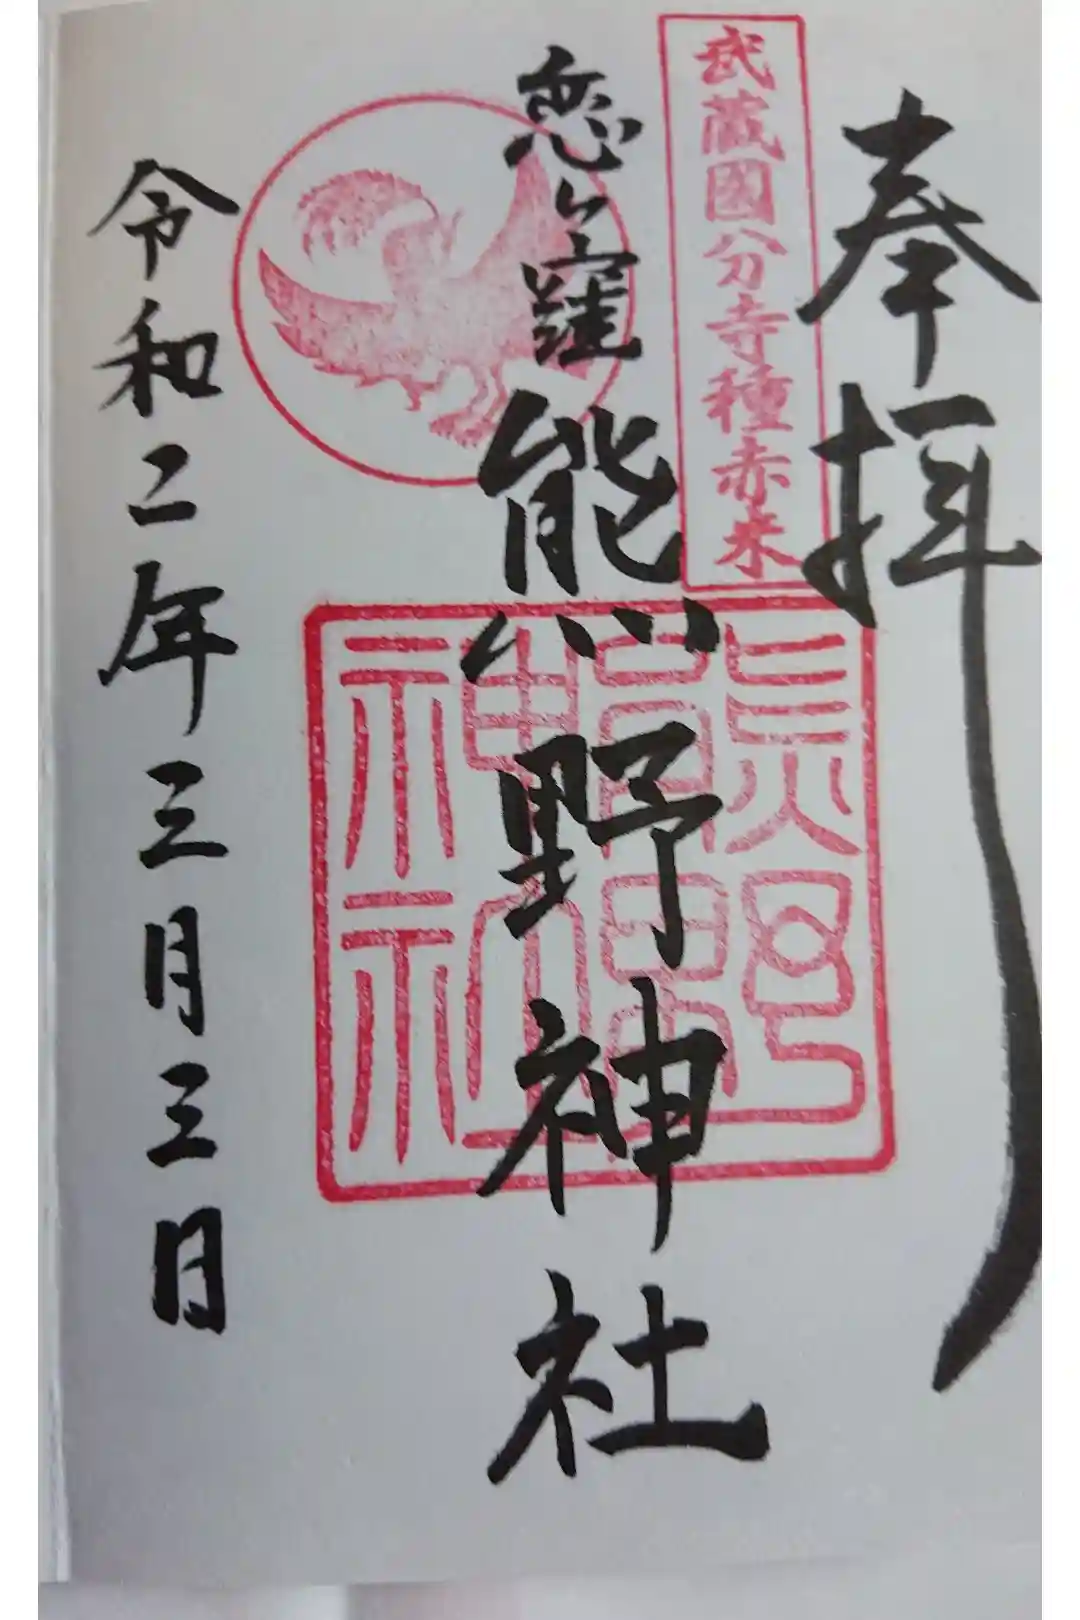 奉拝
武蔵國分寺種赤米
恋ヶ窪
熊野神社
熊野神社
令和二年三月三日